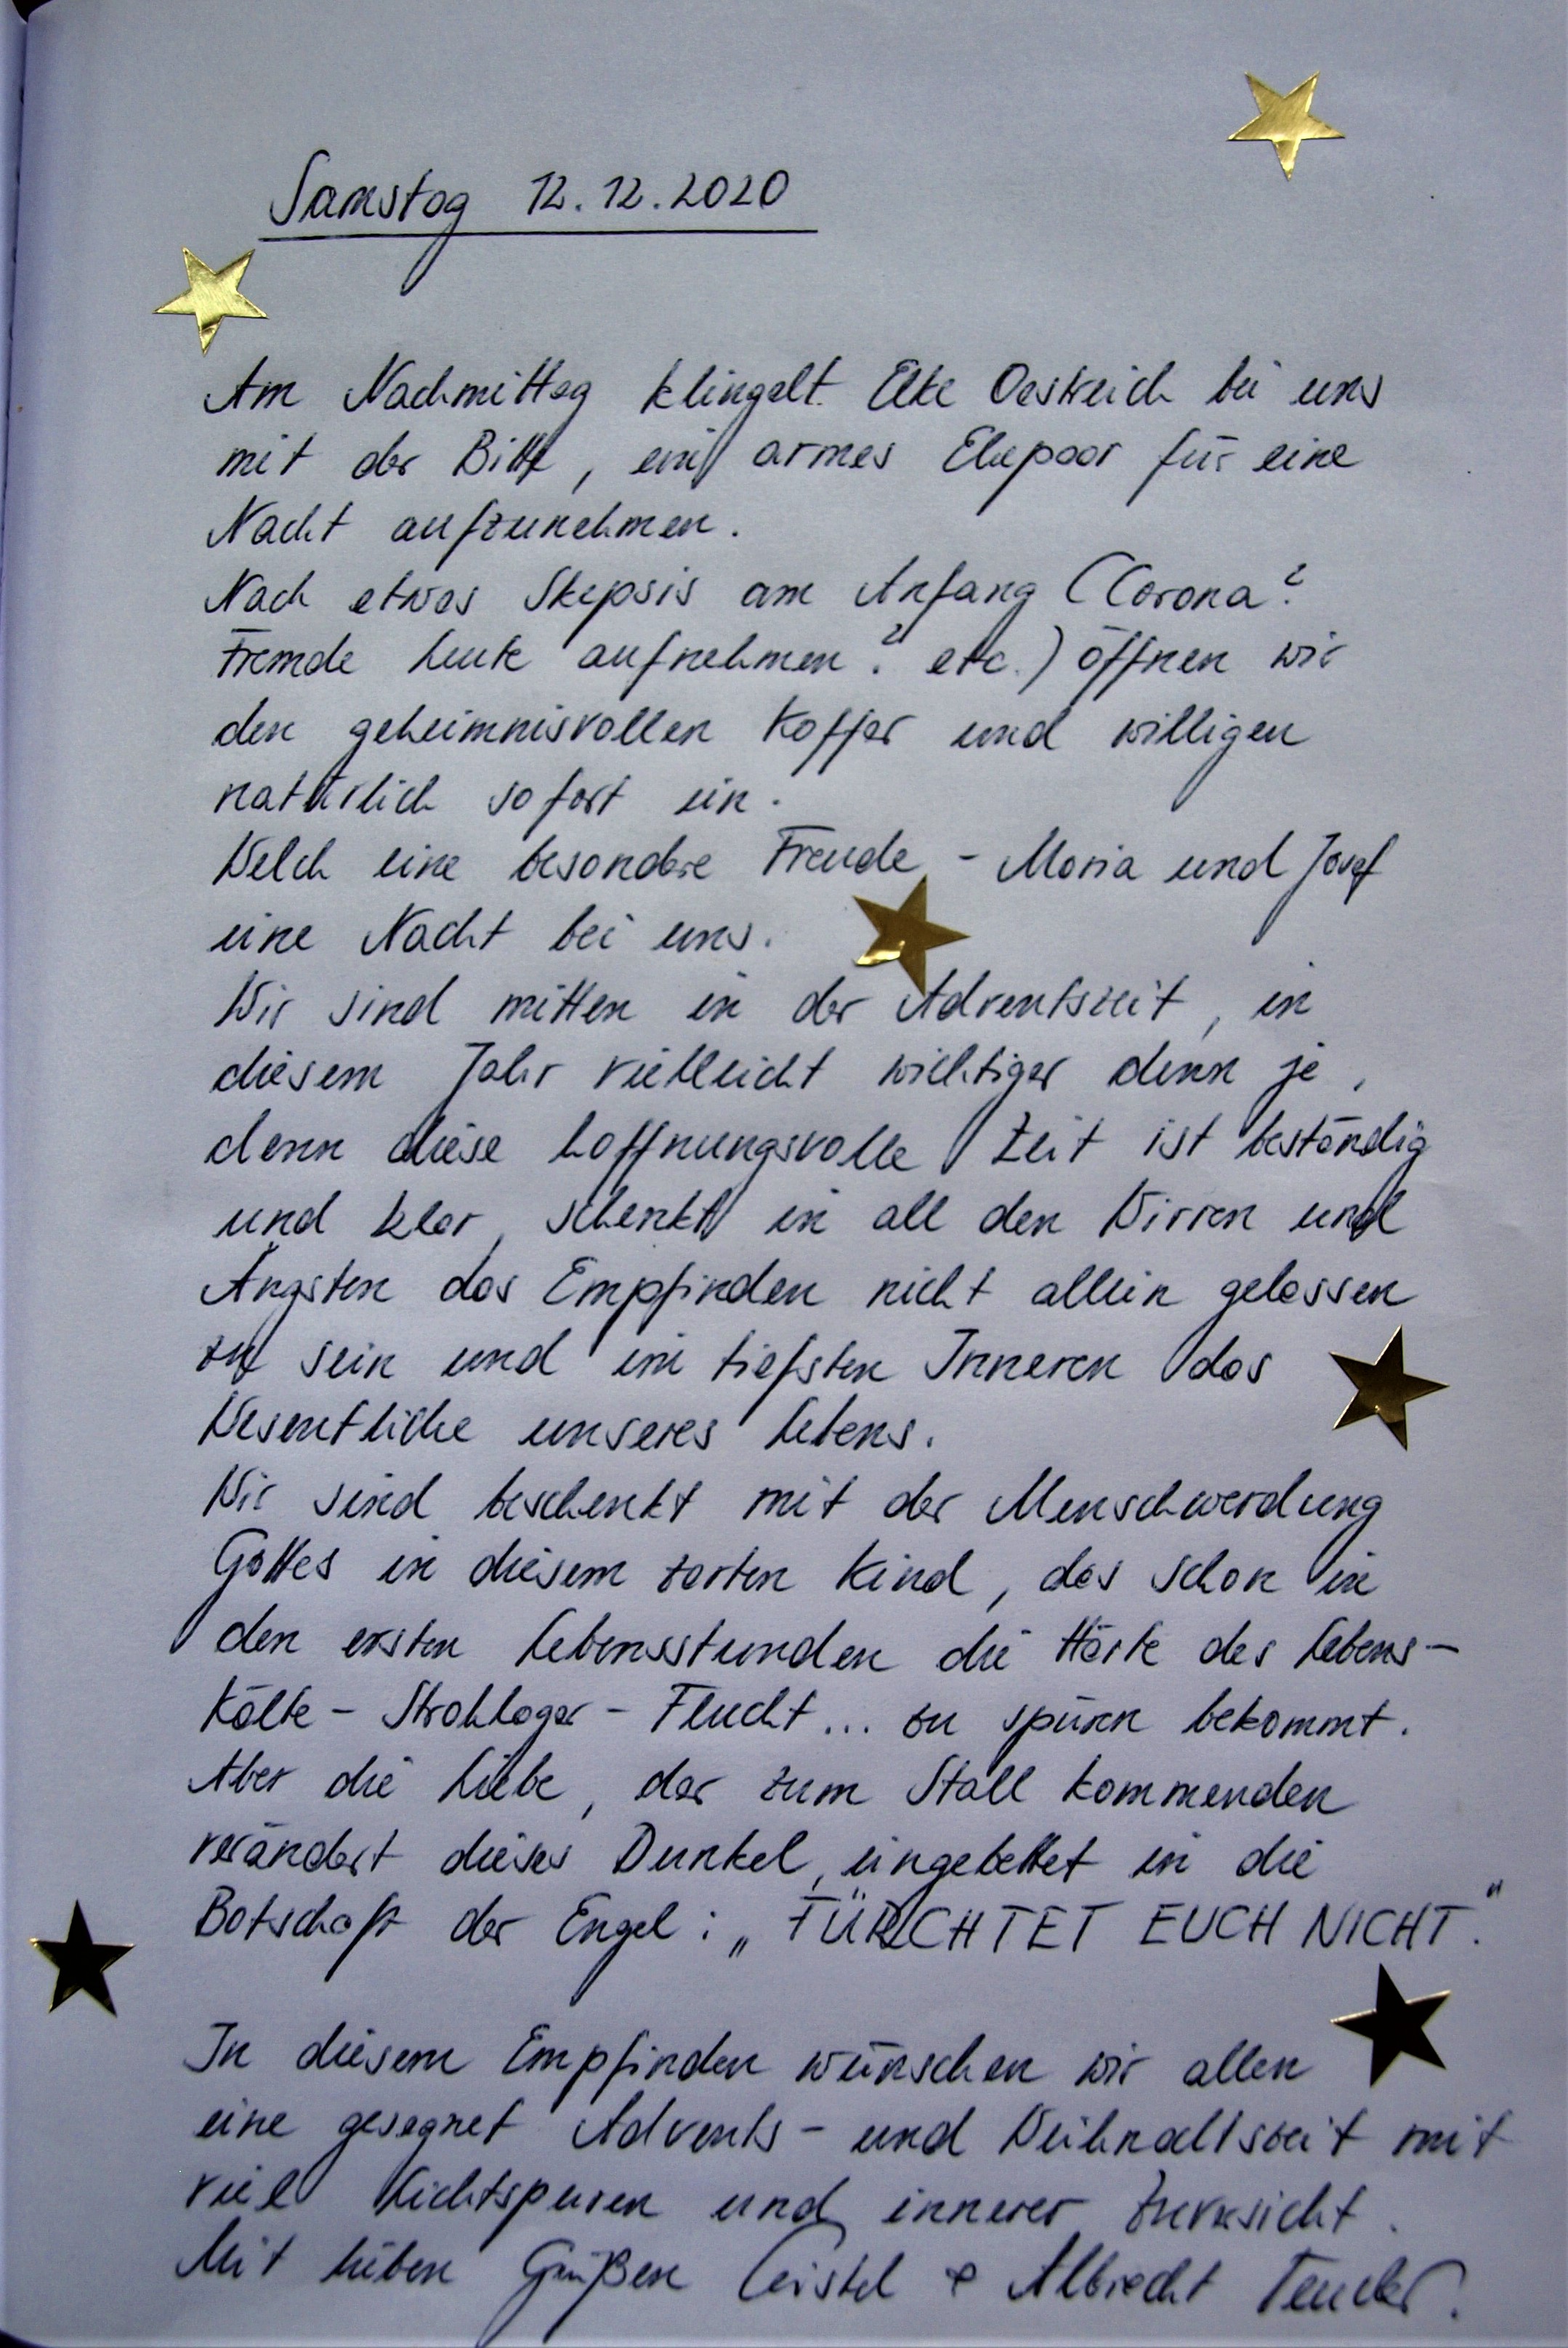 Samstag 12.12.2020
Am Nachmittag klingelt Elke Oestreich bei uns
mit der Bitte, ein armes Ehepaar für eine
Nacht aufzunehmen.
Nach etwas Skepsis am Anfang (Corona?
Fremde Leute aufnehmen? etc.) öffnen wir
den geheimnisvollen Koffer und willigen
natürlich sofort ein.
Welch eine besondere Freude - Maria und Josef
eine Nacht bei uns.
Wir sind mitten in der Adventszeit, in
diesem Jahr vielleicht wichtiger denn je,
denn diese hoffnungsvolle Zeit ist beständig
und klar, schenkt in all den Wirren und
Ängsten das Empfinden nicht allein gelassen
zu sein und im tiefsten Inneren das
Wesentliche unseres Lebens.
Wir sind beschenkt mit der Menschwerdung
Gottes in diesem zarten Kind, das schon in
den ersten Lebensstunden die Härte des Lebens -
Kälte - Strohlager - Flucht... zu spüren bekommt.
Aber die Liebe, der zum Stall kommenden
verändert dieses Dunkel, eingebettet in die
Botschaft der Engel: „FÜRCHTET EUCH NICHT."
In diesem Empfinden wünschen wir allen
eine gesegnet Advents- und Weihnachtszeit mit
viel Lichtspuren und innerer Zuversicht.
Mit lieben Grüßen & Albrecht